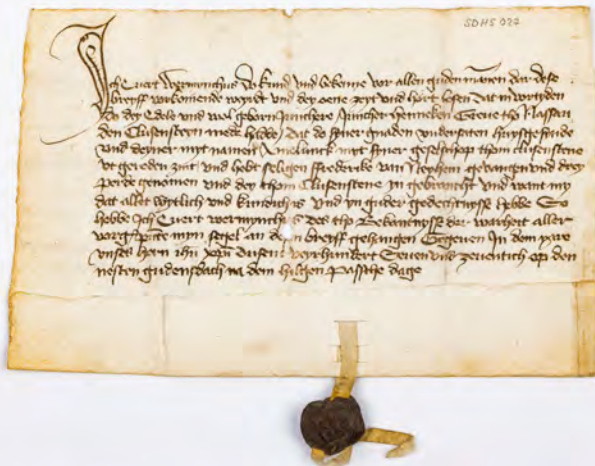 SDHS 027
Ich Evert Wermynchus Orkund und bekenne vor allen guden luden dar dese
breyff vorkomende wayrt und dey oene zeyt und hort lesen dat in vortyden
do dey Edele und wal geborn Junchere Juncher henneken Greve tho Nassau
den Clusensteyn mede hebbe dat do syner gnaden undersaten huysgesinde
und deyner myt namen myt syner geselschop thom clusenstene
ut gereden zint und hebt seligen ffrederike van gevangen und drey
perde genomen und dey thom Clusenstene in gebrocht und want my
dat allet wytlich und kundich is und yn guder gedechtnysse hebbe So
hebbe Ich Evert wermynchus des tho Bekantnysse der warheit aller
vorgescr mym segel an desen breyff gehangen Gegeven In dem yare
unses hern ihu xpi dusent veyrhundert Seven und zeventich op den
nesten gudensdach na dem hilgen Passche dage